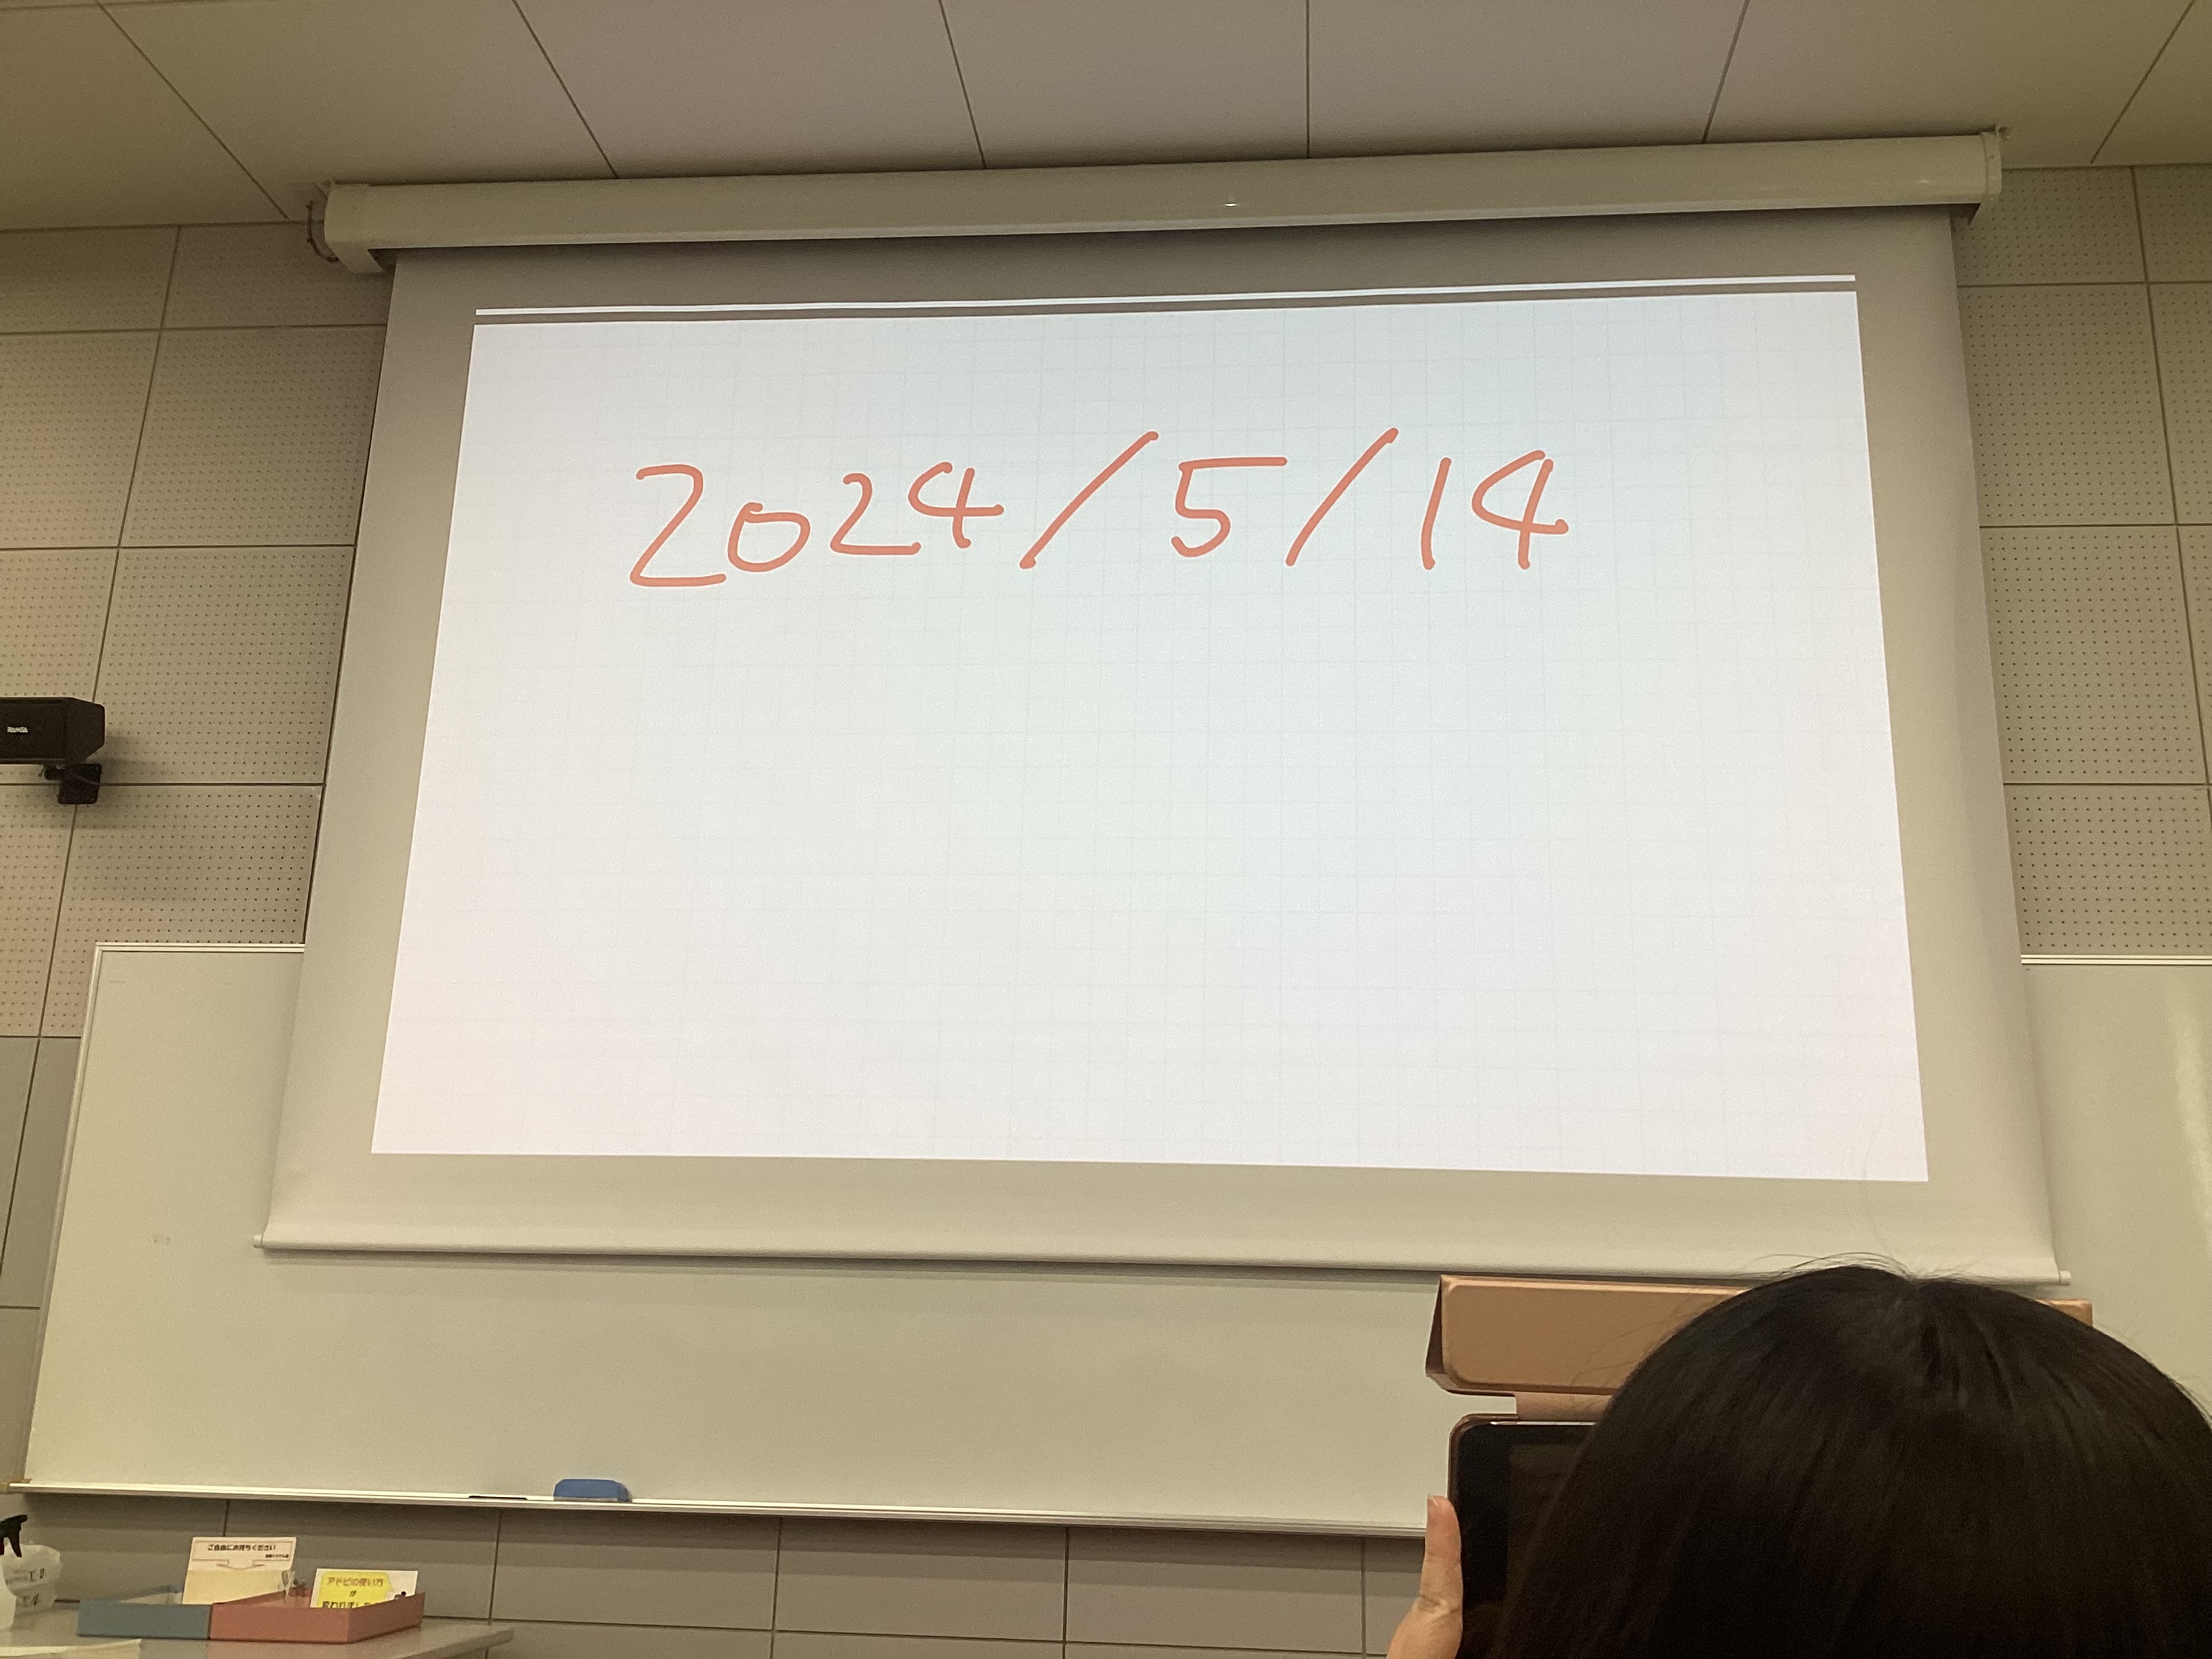 2024/5/14
RAMSA
ご自由にお持ちください
アドビの使い方
が
変わりました